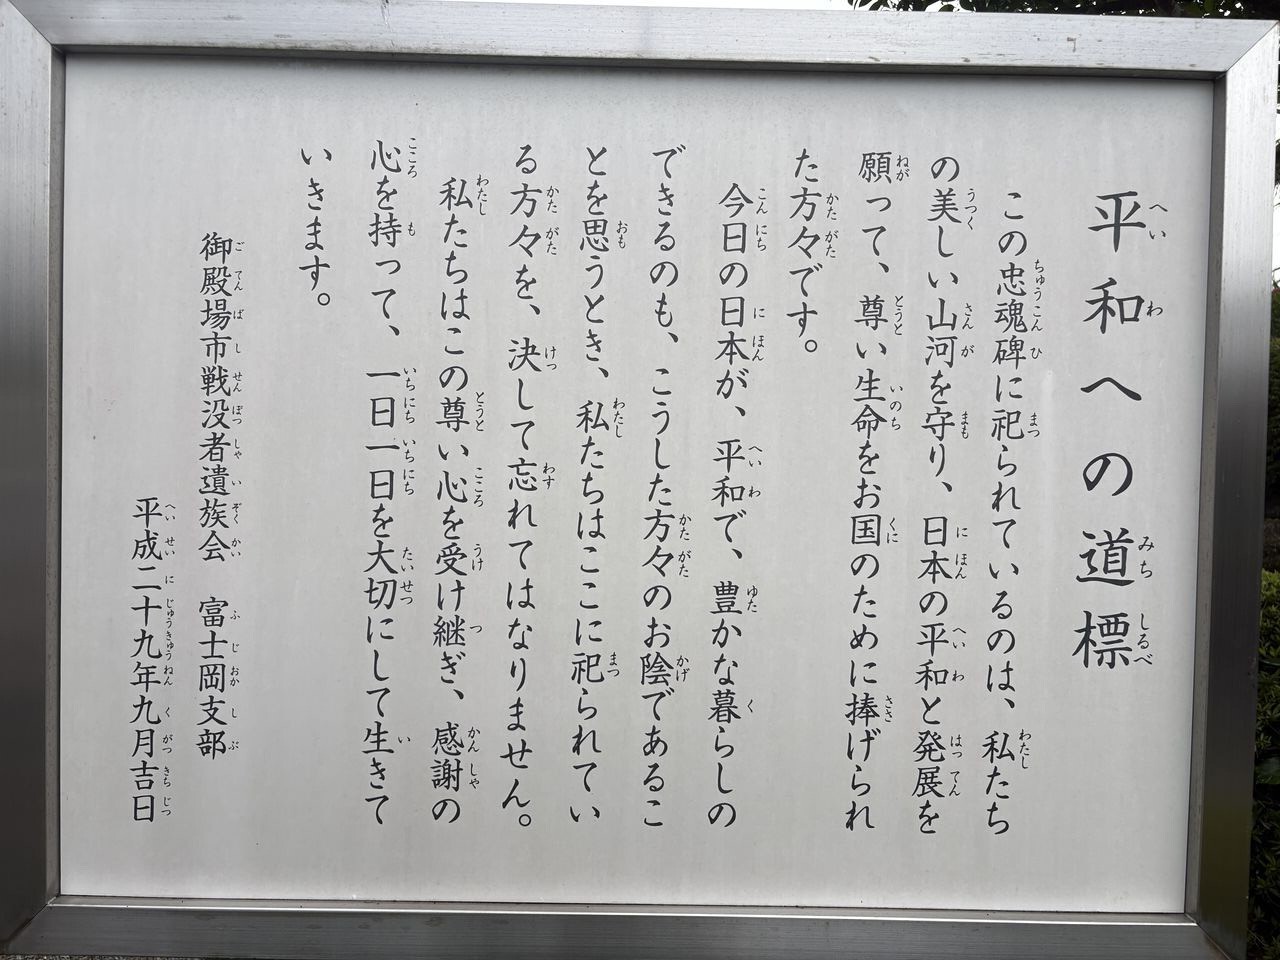 平和への道標
この忠魂碑に祀られているのは、私たち
の美しい山河を守り、日本の平和と発展を
願って、尊い生命をお国のために捧げられ
た方々です。
今日の日本が、平和で、豊かな暮らしの
できるのも、こうした方々のお陰であるこ
とを思うとき、私たちはここに祀られてい
る方々を、決して忘れてはなりません。
私たちはこの尊い心を受け継ぎ、感謝の
心を持って、一日一日を大切にして生きて
いきます。
御殿場市戦没者遺族会 富士岡支部
平成二十九年九月吉日